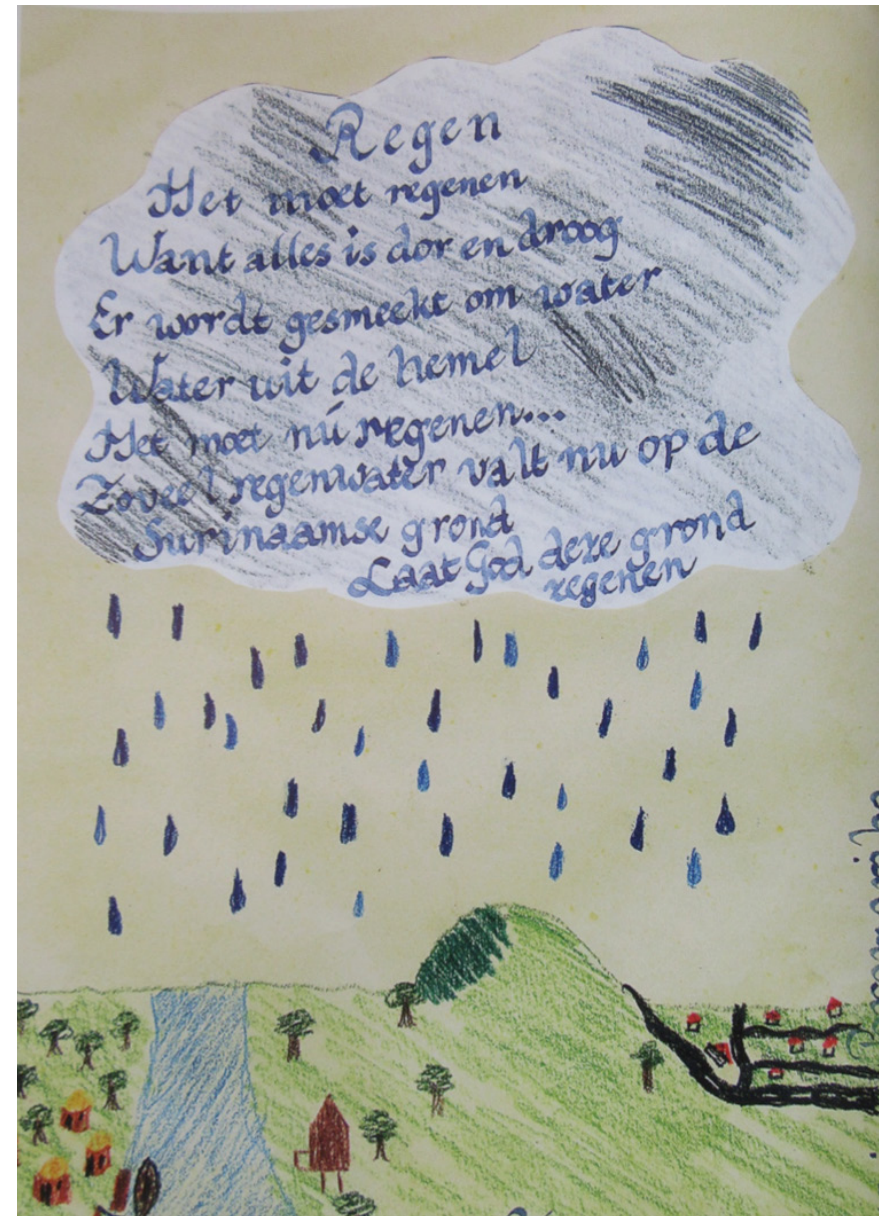 Regen
Het moet regenen
Want alles is dor en droog
Er wordt gesmeekt om water
Water uit de hemel
Het moet nú regenen...
Zoveel regenwater valt nu op de
Surinaamse grond
Laat God deze grond
zegenen